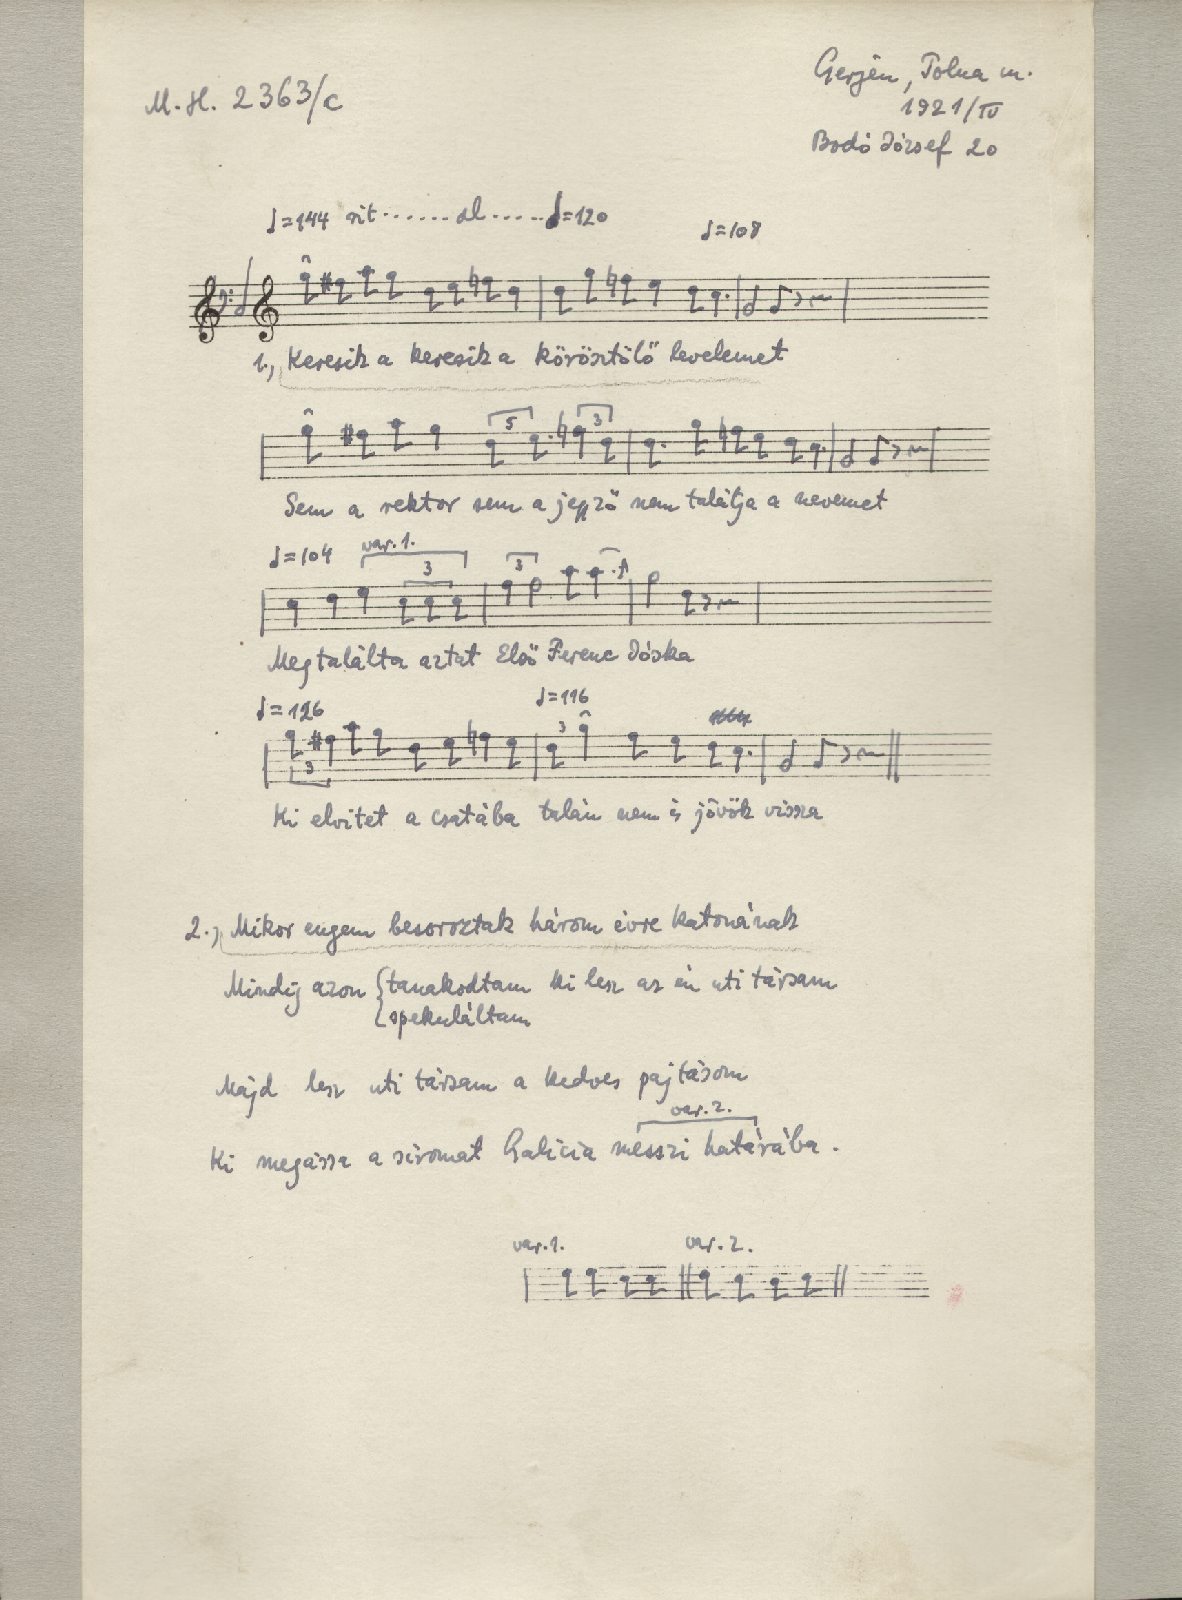 M. H. 2363/c
Gerjén, Tolna m.
1921/IV
Bodó József 20
♩=144 rit....... al.....♩=120
♩=108
1., Keresik a keresik a körösztölő levelemet
5 3
Sem a rektor sem a jegyző nem találja a nevemet
♩=104 var. 1.
3 3
Megtalálta aztat Első Ferenc Jóska
♩=126 ♩=116
3 3
Ki elvitet a csatába talán nem is jövök vissza
2., Mikor engem besoroztak három évre katonának
Mindíg azon {tanakodtam ki lesz az én uti társam
{spekuláltam
Majd lesz uti társam a kedves pajtásom
var. 2.
Ki megássa a síromat Galicia messzi határába.
var. 1. var. 2.